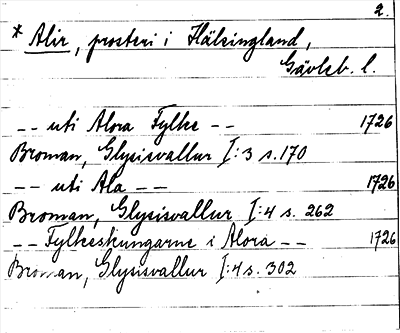 2.
* Alir, prosteri i Hälsingland,
Gävleb. l.
-- uti Alora Fylke -- 1726
Broman, Glysisvallur I:3 s. 170
-- uti Ala -- 1726
Broman, Glysisvallur I:4 s. 262
-- Fylkeskungarne i Alora -- 1726
Broman, Glysisvallur I:4 s. 302